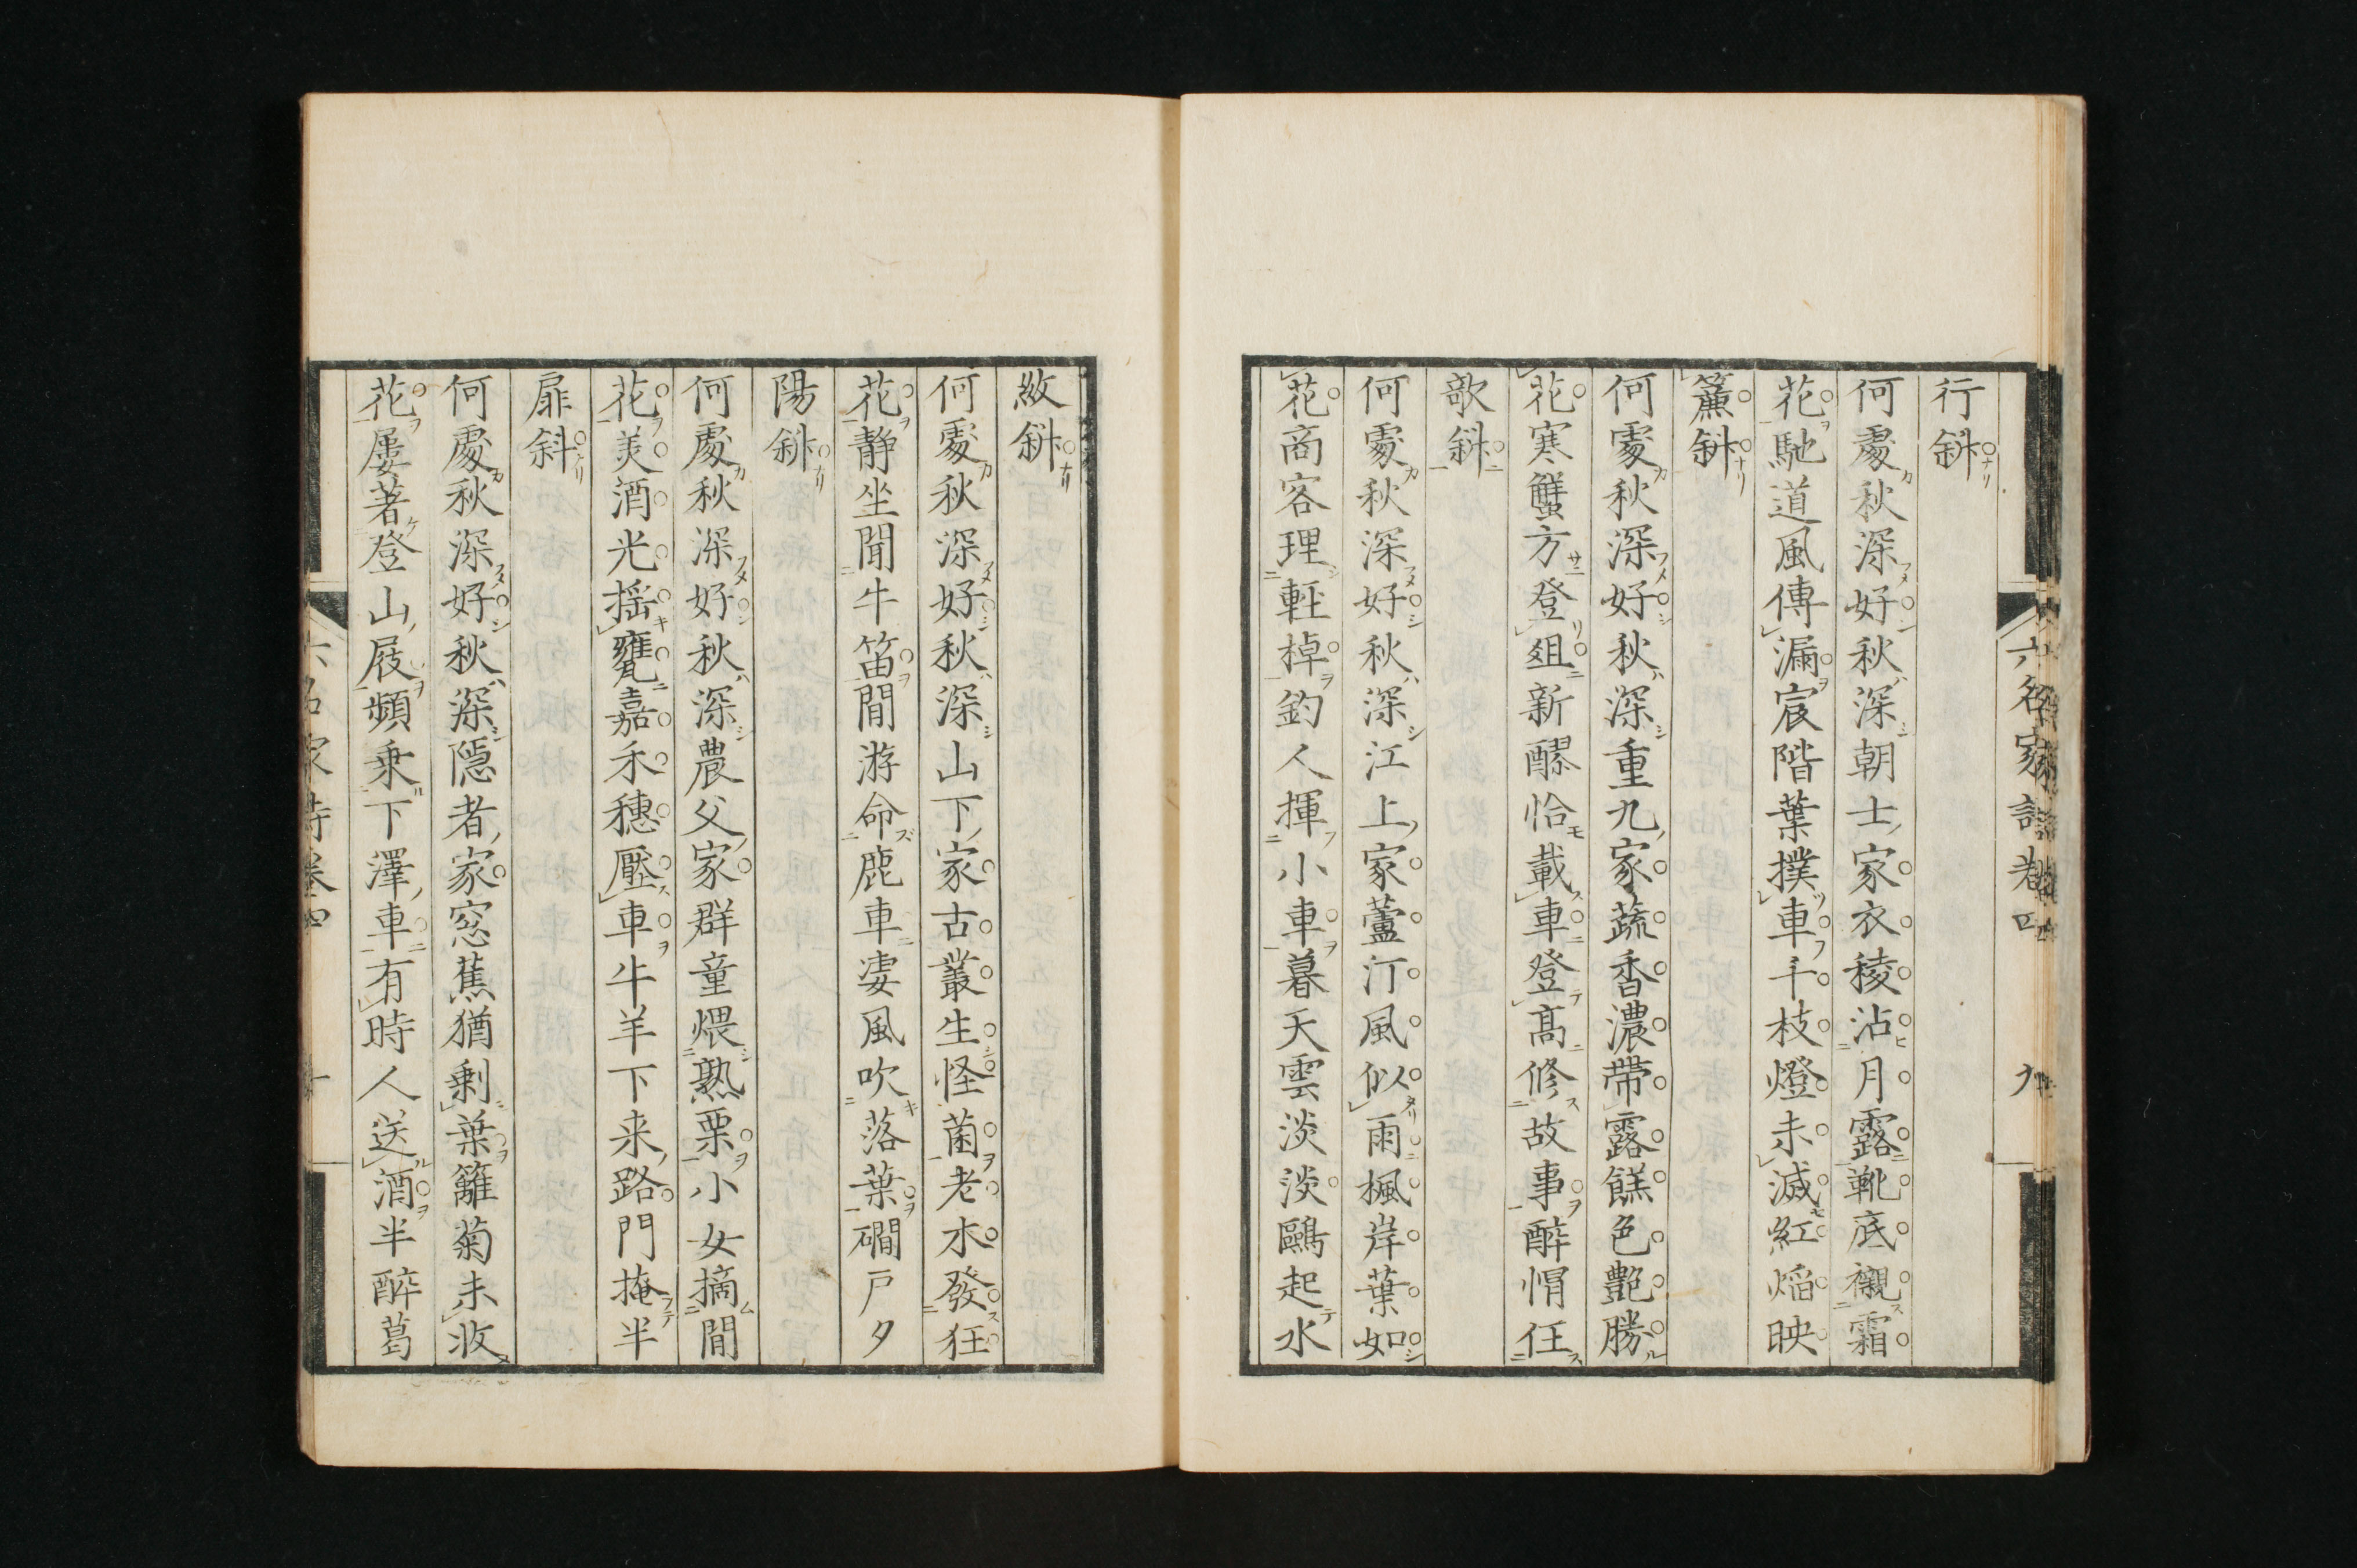 六名家詩卷四 九
行斜
何處秋深好秋深朝士家衣稜沾月露靴底襯霜
花馳道風傳漏宸階葉撲車千枝燈未滅紅焰映
簾斜
何處秋深好秋深重九家蔬香濃帶露餻色艷勝
花寒蟹方登俎新醪恰載車登高修故事醉帽任
欹斜
何處秋深好秋深江上家蘆汀風似雨楓岸葉如
花商客理輕棹釣人揮小車暮天雲淡淡鷗起水
紋斜
何處秋深好秋深山下家古叢生怪菌老木發狂
花靜坐聞牛笛閒游命鹿車凄風吹落葉磵戸夕
陽斜
何處秋深好秋深農父家群童煨熟栗小女摘閒
花美酒光搖甕嘉禾穗壓車牛羊下来路門掩半
扉斜
何處秋深好秋深隱者家窓蕉猶剰葉籬菊未收
花屢著登山屐頻乗下澤車有時人送酒半醉葛
六名家詩卷四